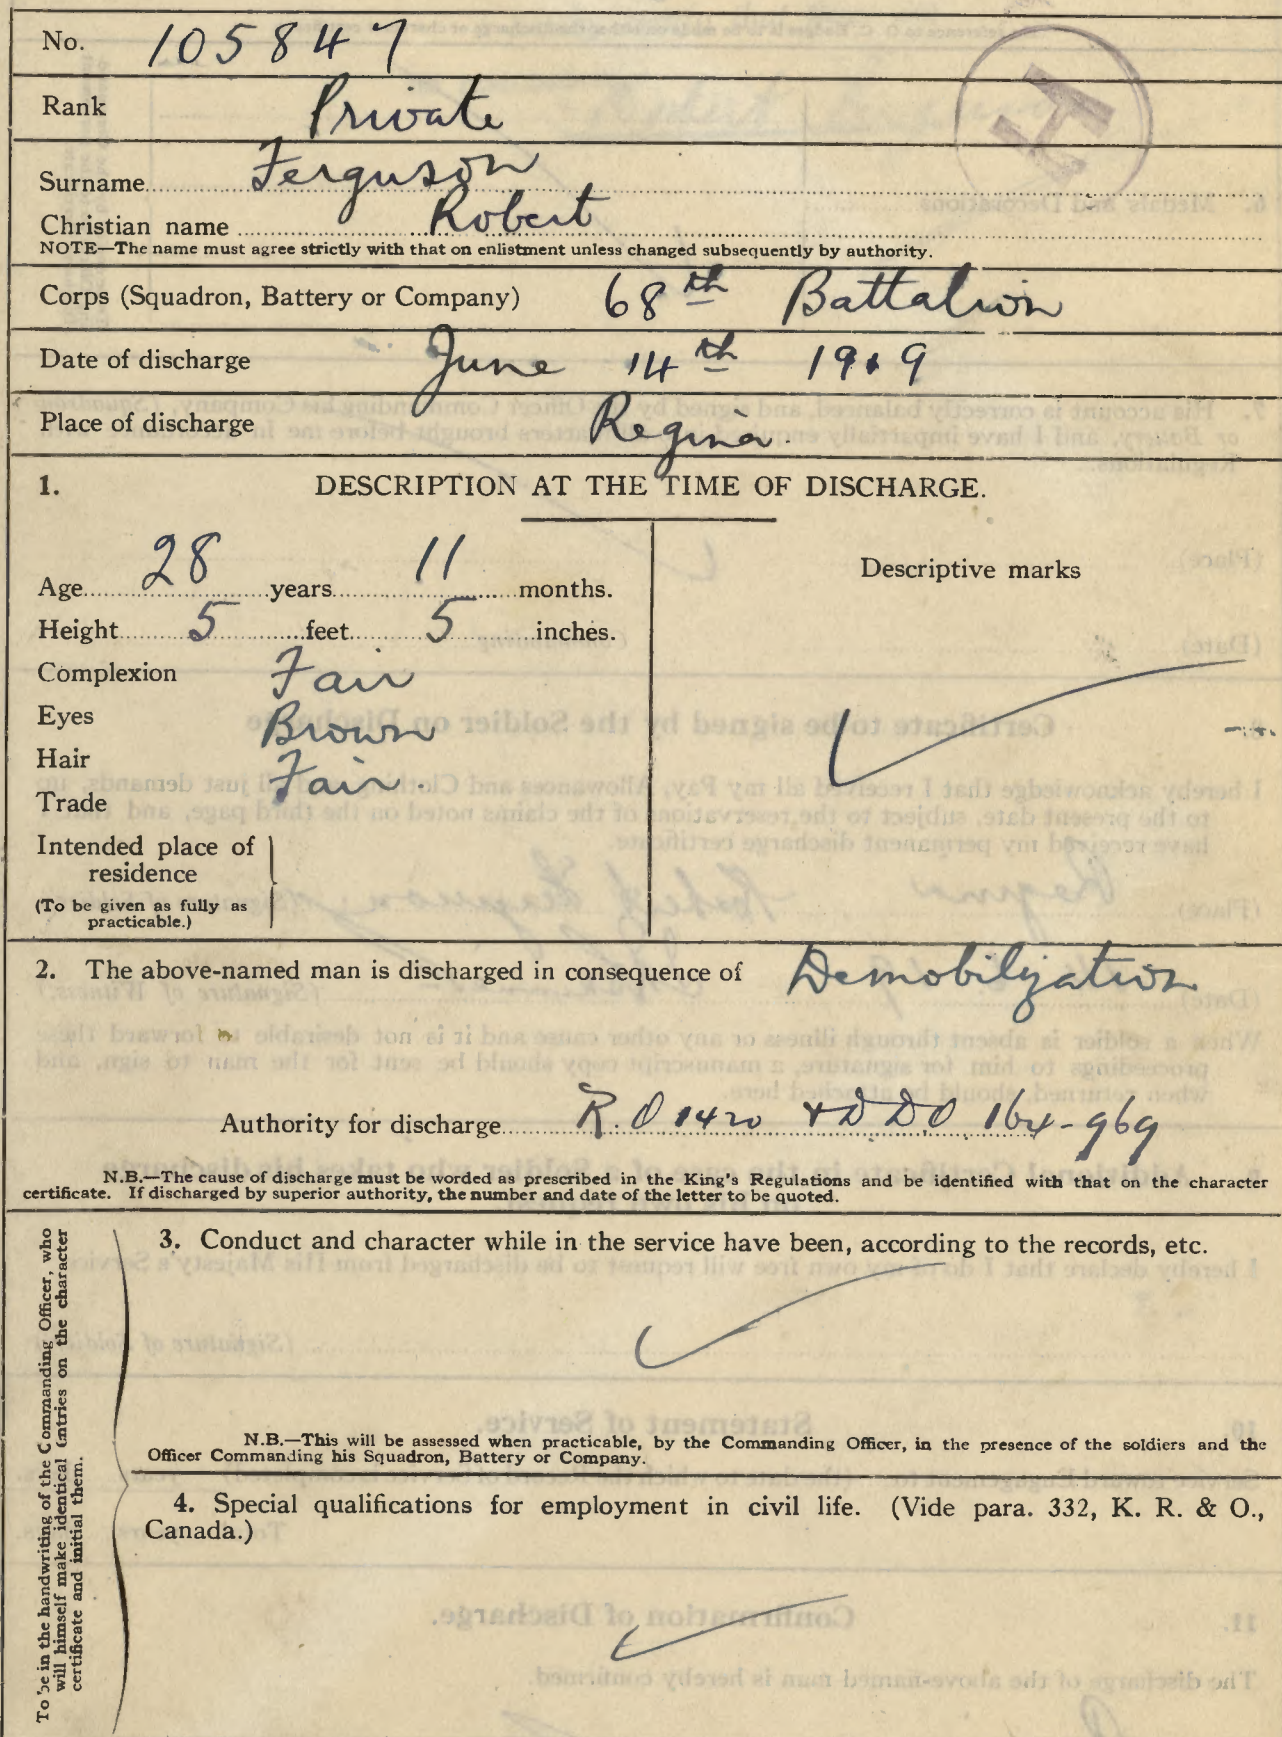 No. 105847
Rank Private
H
Surname Ferguson
Christian name Robert
NOTE—The name must agree strictly with that on enlistment unless changed subsequently by authority.
Corps (Squadron, Battery or Company) 68th Battalion
Date of discharge June 14th 1919
Place of discharge Regina.
1. DESCRIPTION AT THE TIME OF DISCHARGE.
Age 28 years 11 months.
Height 5 feet 5 inches.
Complexion Fair
Eyes Brown
Hair Fair.
Trade
Intended place of
residence
(To be given as fully as
practicable.)
Descriptive marks
2. The above-named man is discharged in consequence of Demobilization
Authority for discharge R.O 1420 + D D O 164-969
N.B.—The cause of discharge must be worded as prescribed in the King's Regulations and be identified with that on the character
certificate. If discharged by superior authority, the number and date of the letter to be quoted.
To be in the handwriting of the Commanding Officer, who
will himself make identical entries on the character
certificate and initial them.
3. Conduct and character while in the service have been, according to the records, etc.
N.B.—This will be assessed when practicable, by the Commanding Officer, in the presence of the soldiers and the
Officer Commanding his Squadron, Battery or Company.
4. Special qualifications for employment in civil life. (Vide para. 332, K. R. & O.,
Canada.)